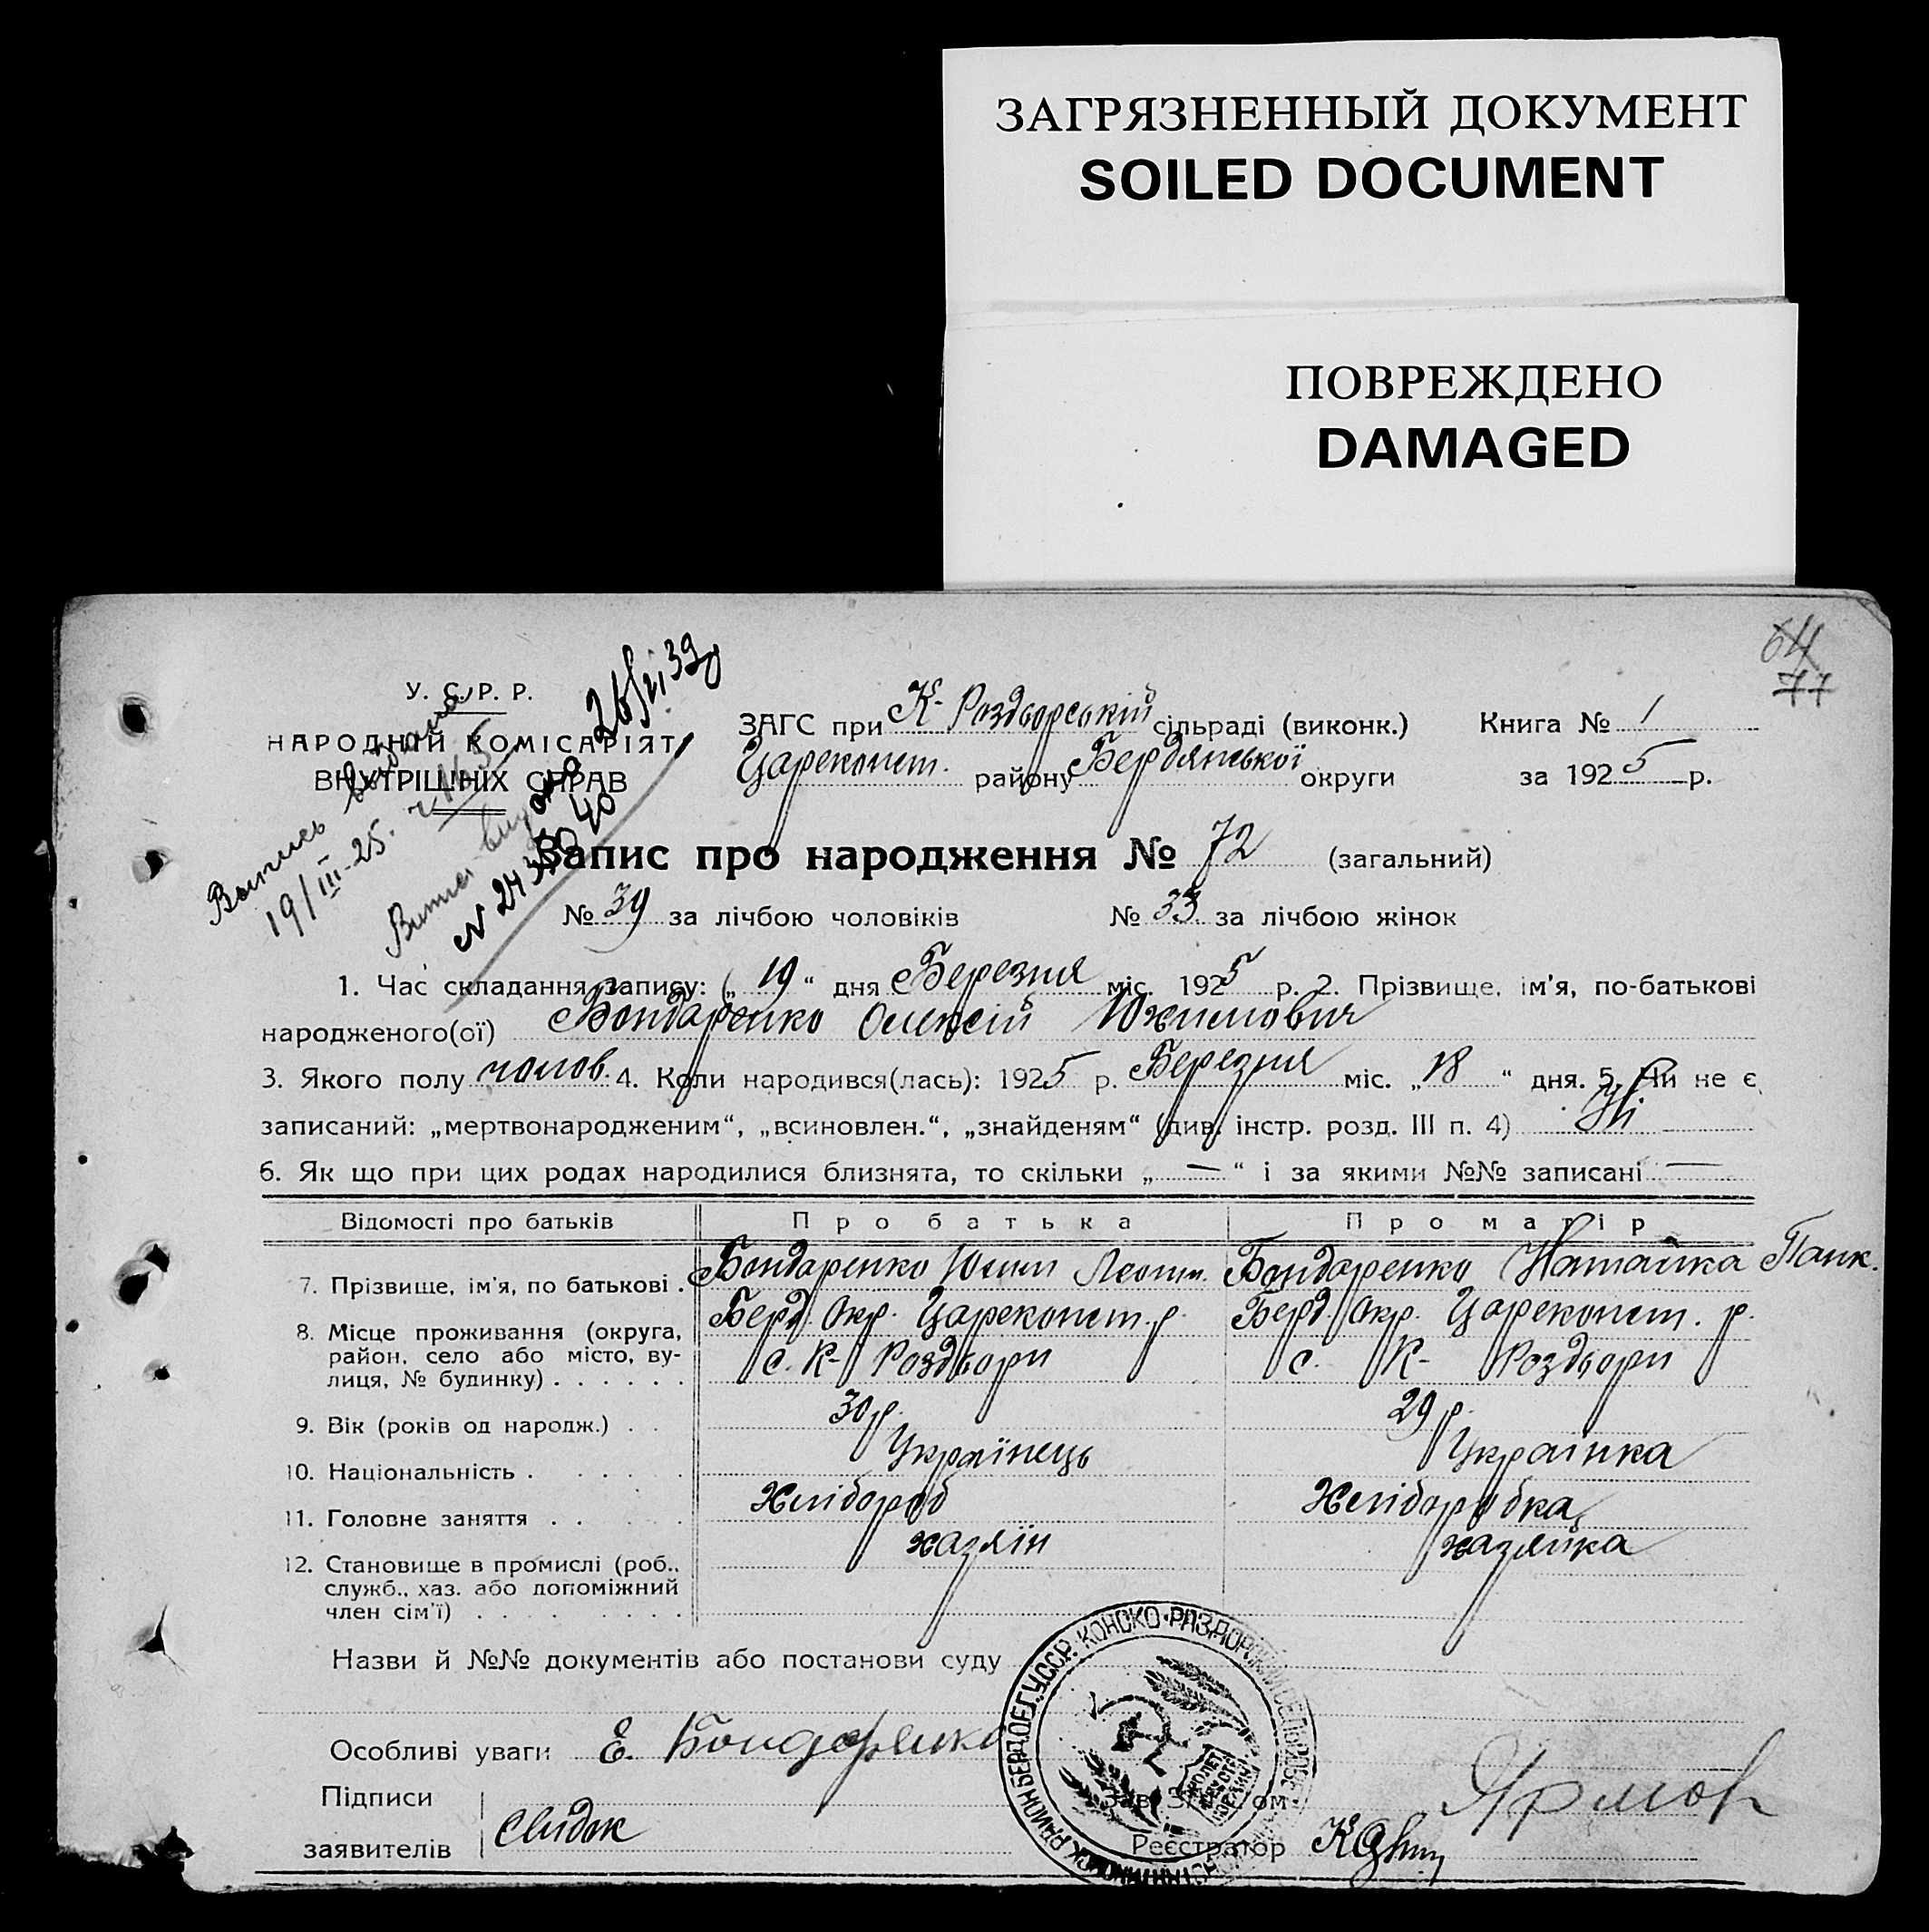 ЗАГРЯЗНЕННЫЙ ДОКУМЕНТ
SOILED DOCUMENT
ПОВРЕЖДЕНО
DAMAGED
64
77
У. С. Р. Р.
НАРОДНІЙ КОМІСАРІЯТ
ВНУТРІШНІХ СПРАВ
Выпись выдана
19/III-25.
ЗАГС при К-Роздорській сільраді (виконк.) Книга № 1
Царекопст. району Бердянської округи за 1925 р.
Запис про народження № 72 (загальний)
№ 39 за лічбою чоловіків № 33 за лічбою жінок
1. Час складання запису: „19“ дня Березня міс. 1925 р. 2. Прізвище, ім'я, по-батькові
народженого(ої) Бондаренко Олексій Юхимович
3. Якого полу чолов. 4. Коли народився(лась): 1925 р. Березня міс. „18“ дня. 5. Чи не є
записаний: „мертвонародженим“, „всиновлен.“, „знайденям“ (див. інстр. розд. III п. 4) Ні
6. Як що при цих родах народилися близнята, то скільки „—“ і за якими №№ записані —
Відомості про батьків Про батька Про матір
7. Прізвище, ім'я, по батькові . Бондаренко Юхим Леонт. Бондаренко Наталка Панк.
8. Місце проживання (округа, район, село або місто, вулиця, № будинку) . . . . . . Берд. Окр. Царекопст. р. Берд. Окр. Царекопст. р.
с. К-Роздори с. К-Роздори
9. Вік (років од народж.) . . 30 р. 29 р.
10. Національність . . . . . . Українець Українка
11. Головне заняття . . . . . Хлібороб Хліборобка
12. Становище в промислі (роб., служб., хаз. або допоміжний член сім'ї) . . . . . . . . хазяїн хазяйка
Назви й №№ документів або постанови суду
Особливі уваги Е. Бондаренко
Підписи
заявителів Свидок
Зав. ЗАГС'ом
Реєстратор
КОНСКО-РАЗДОРСКИЙ